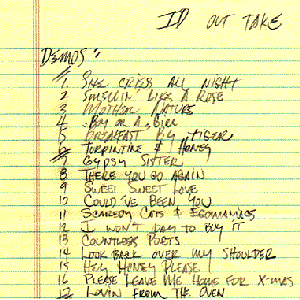 ID OUT TAKE
DEMOS"
1 SHE CRIES ALL NIGHT
2 SMELLIN LIKE A ROSE
3 MOTHER NATURE
4 BOY OR A GIRL
5 BREAKFAST BY TIGER
6 TURPINTINE & HONEY
7 GYPSY SISTER
8 THERE YOU GO AGAIN
9 SWEET SWEET LOVE
10 COULD'VE BEEN YOU
11 SCAREDY CATS & EGOMANIACS
12 I WON'T PAY TO BUY IT
13 COUNTLESS POETS
14 LOOK BACK OVER MY SHOULDER
15 HEY HONEY PLEASE
16 PLEASE LEAVE ME HOME FOR X-MAS
17 LOVIN FROM THE OVEN